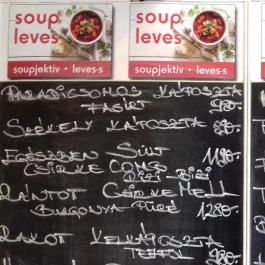 soup
leves
soupjektív • leves-s
soup
leves
soupjektív • leves-s
PARADICSOMOS KÁPOSZTA
FASÍRT 980.-
SZÉKELY KÁPOSZTA 890.-
EGÉSZBEN SÜLT 1190.-
CSIRKE COMB
RIZI-BIZI
RÁNTOTT CSIRKE MELL
BURGONYA PÜRÉ 1280.-
RAKOTT KELKÁPOSZTA